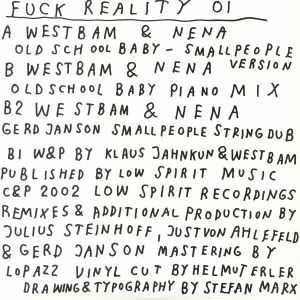 FUCK REALITY 01
A WESTBAM & NENA
OLD SCHOOL BABY - SMALLPEOPLE
VERSION
B WESTBAM & NENA
OLDSCHOOL BABY PIANO MIX
B2 WESTBAM & NENA
GERD JANSON SMALLPEOPLE STRING DUB
B1 W&P BY KLAUS JAHNKUN & WESTBAM
PUBLISHED BY LOW SPIRIT MUSIC
C&P 2002 LOW SPIRIT RECORDINGS
REMIXES & ADDITIONAL PRODUCTION BY
JULIUS STEINHOFF, JUST VON AHLEFELD
& GERD JANSON MASTERING BY
LOPAZZ VINYL CUT BY HELMUT ERLER
DRAWING & TYPOGRAPHY BY STEFAN MARX